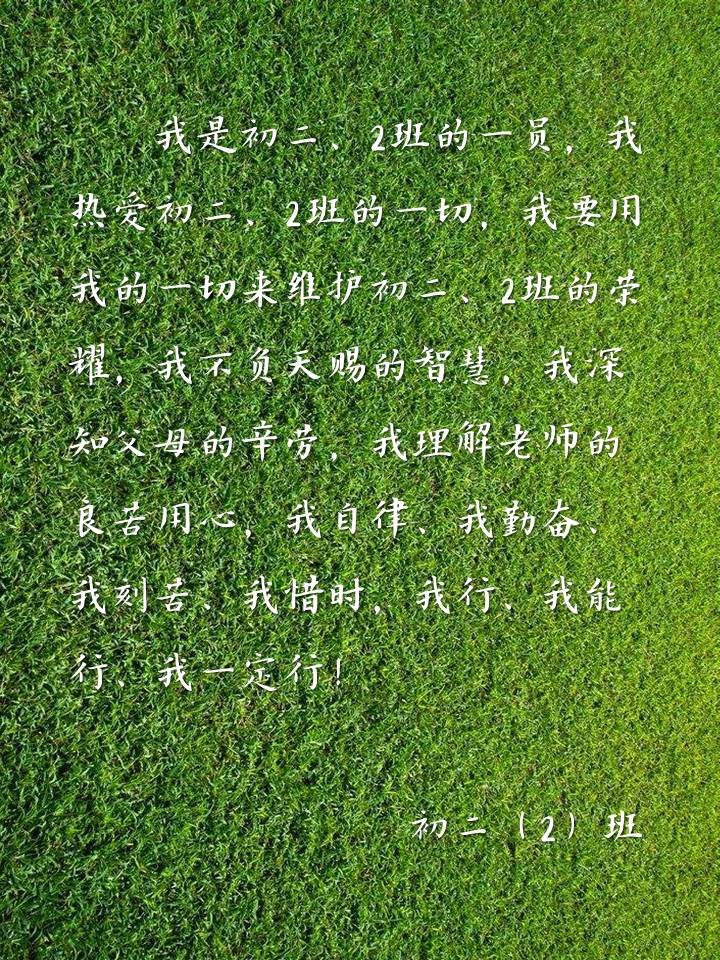 我是初二、2班的一员，我
热爱初二、2班的一切，我要用
我的一切来维护初二、2班的荣
耀，我不负天赐的智慧，我深
知父母的辛劳，我理解老师的
良苦用心，我自律、我勤奋、
我刻苦、我惜时，我行、我能
行、我一定行！
初二（2）班